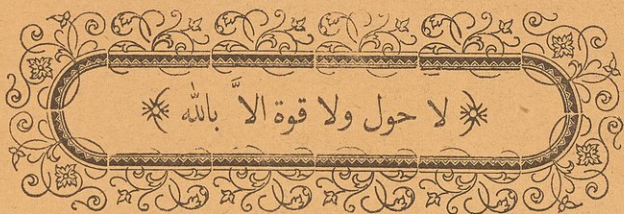 لا حول ولا قوة الاَّ بالله